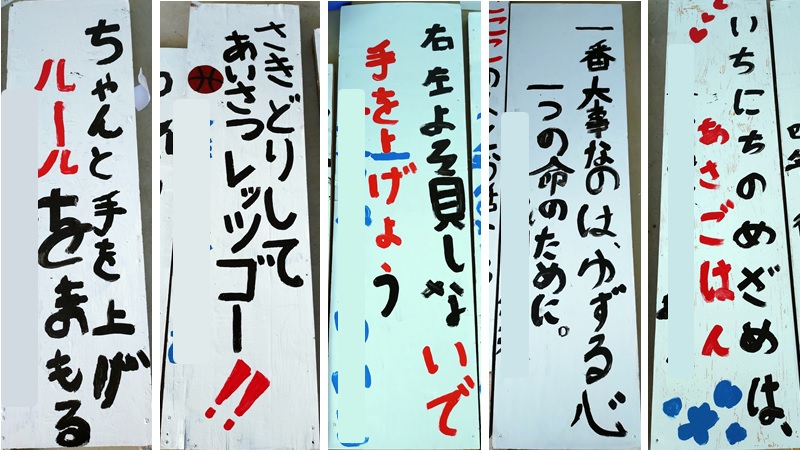 ちゃんと手を上げ
ルールをまもる
さきどりして
あいさつレッツゴー!!
右左よそ員しないで
手を上げよう
一番大事なのは、ゆずる心
一つの命のために。
いちにちのめざめは、
あさごはん